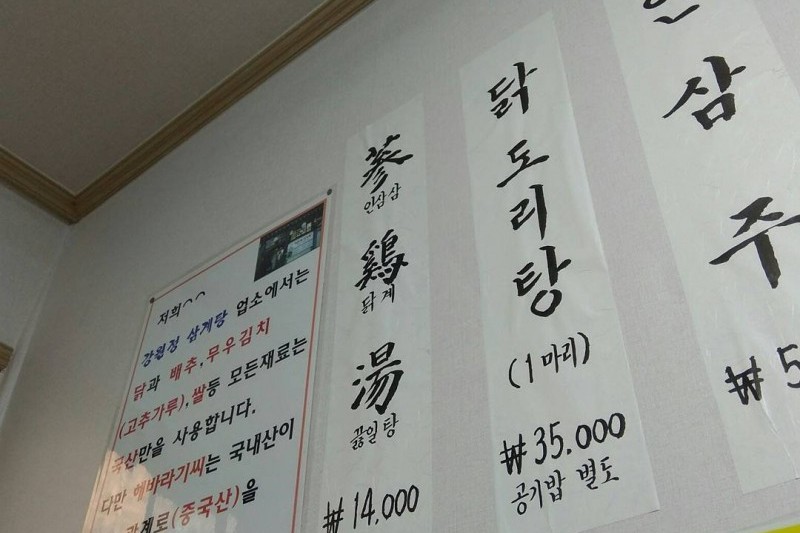 저희^^
강원정 삼계탕 업소에서는
닭과 배추,무우김치
(고추가루),쌀등 모든재료는
국산만을 사용합니다.
다만 해바라기씨는 국내산이
(중국산)을
蔘
인삼삼
鷄
닭계
湯
끓일탕
₩14,000
닭
도
리
탕
(1마리)
₩35.000
공기밥 별도
인
삼
주
₩5